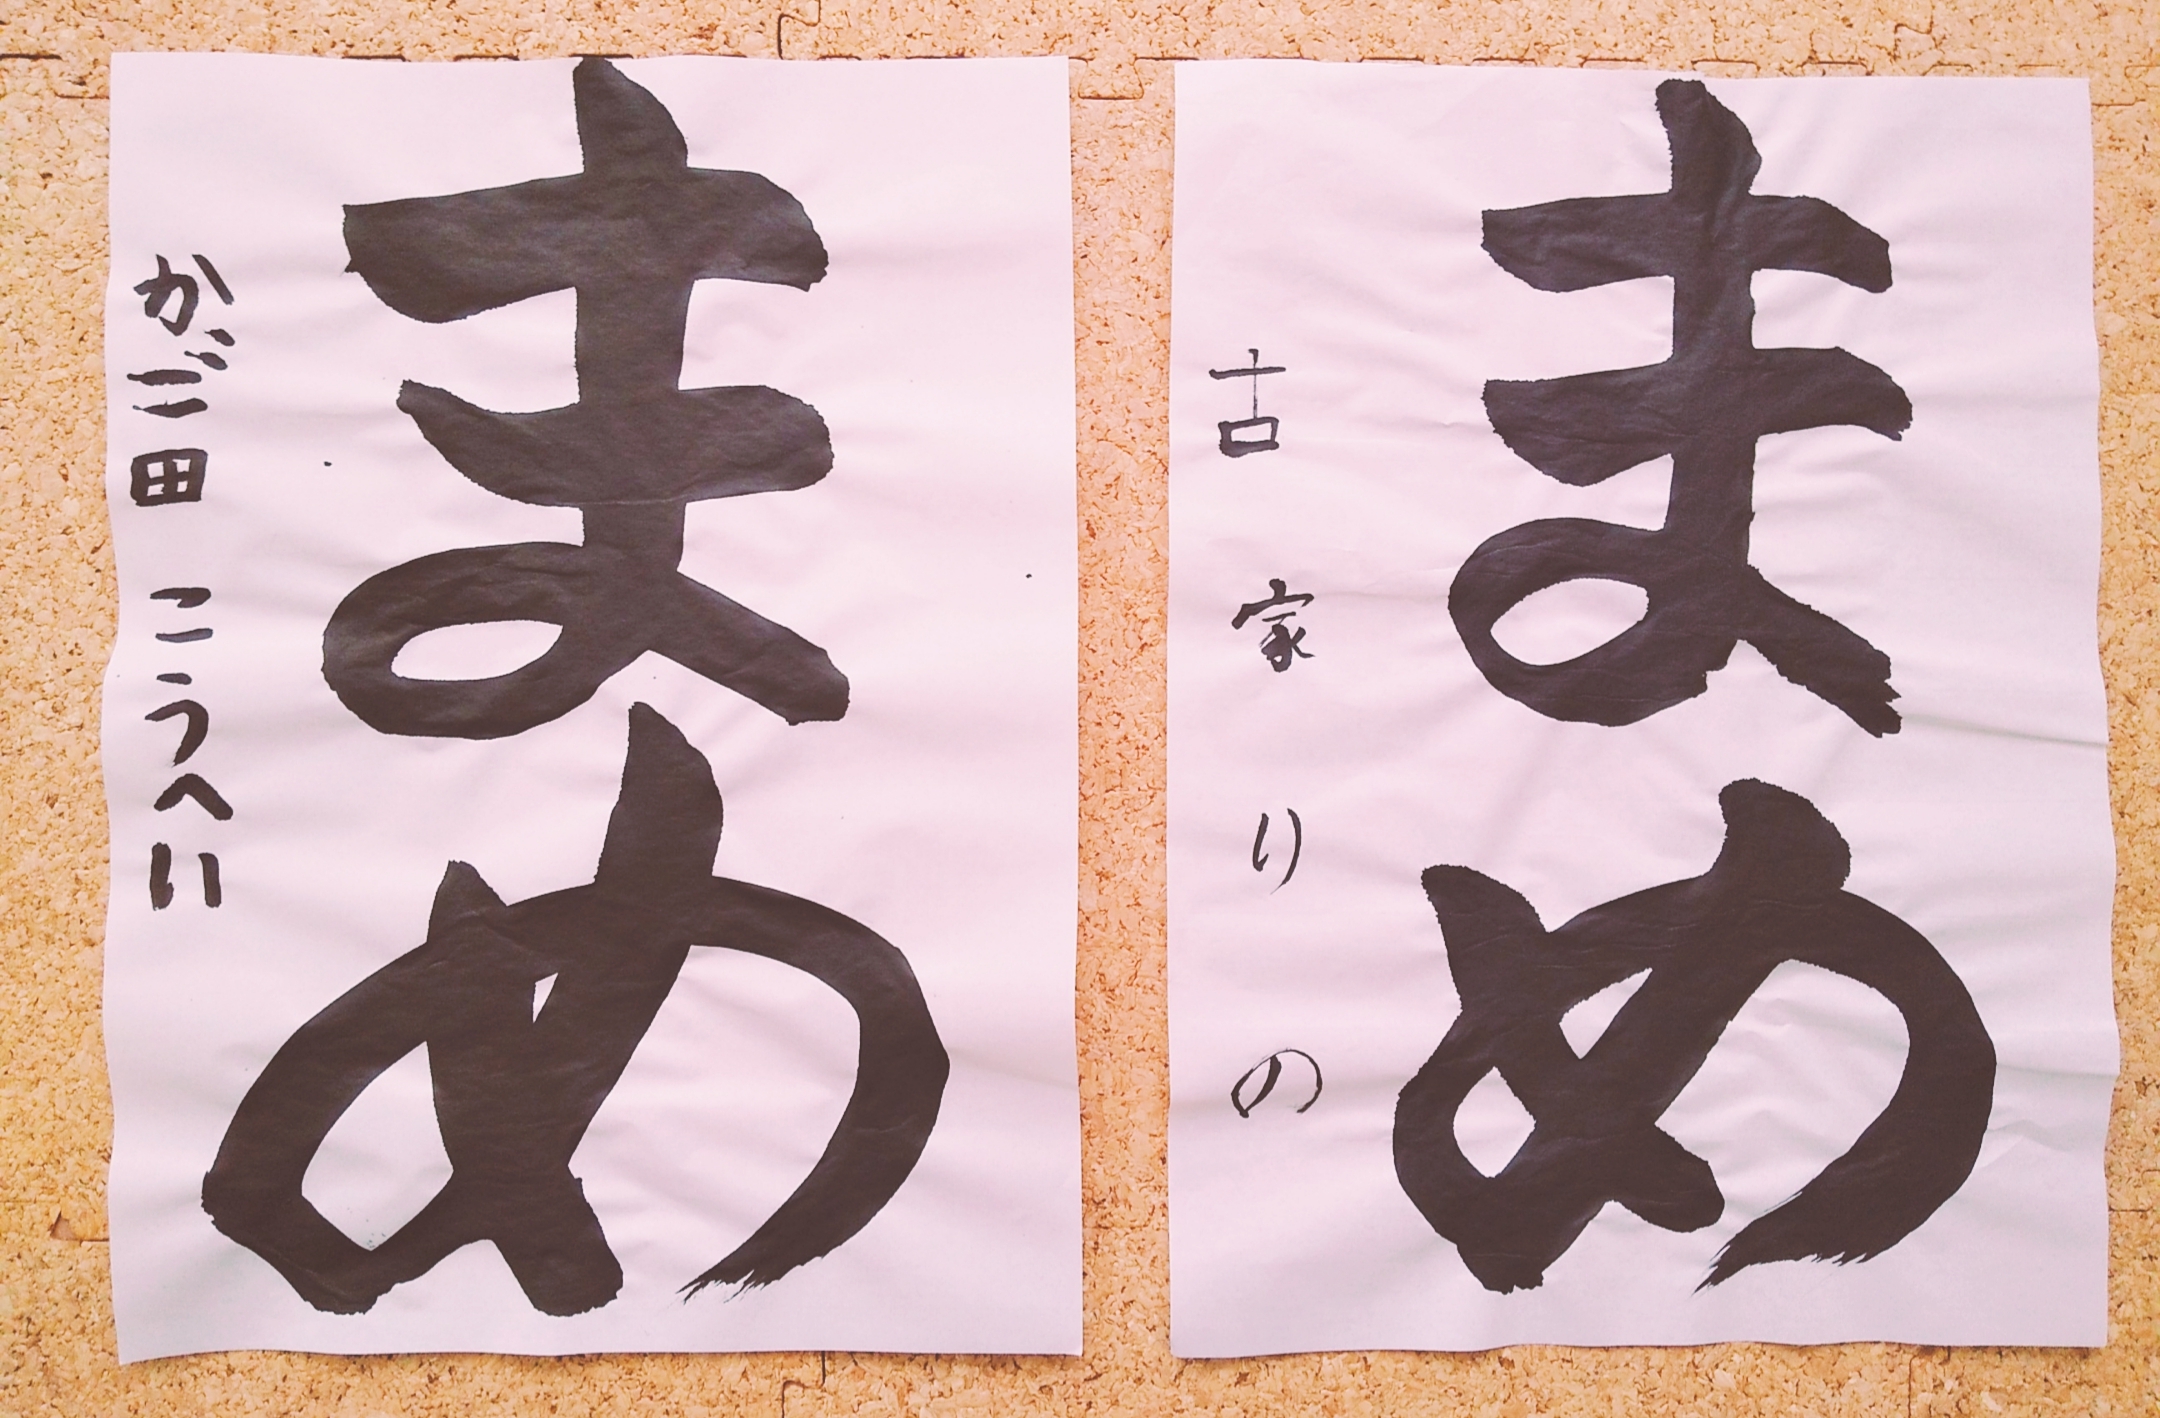 まめ
古家りの
まめ
かご田 こうへい